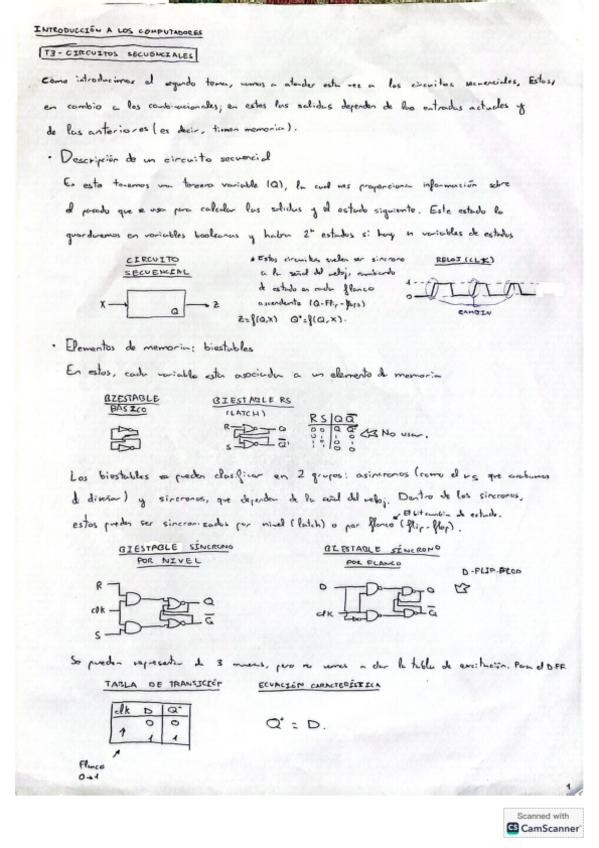 INTRODUCCIÓN A LOS COMPUTADORES
T3 - CIRCUITOS SECUENCIALES
Como introducimos el segundo tema, vamos a atender esta vez a los circuitos secuenciales. Estos,
en cambio a los combinacionales, en estos las salidas dependen de las entradas actuales y
de las anteriores (es decir, tienen memoria).
• Descripción de un circuito secuencial
En esta tenemos una tercera variable (Q), la cual nos proporciona información sobre
el pasado que se usa para calcular las salidas y el estado siguiente. Este estado lo
guardaremos en variables booleanas y habrá 2ⁿ estados si hay n variables de estados
CIRCUITO
SECUENCIAL
X
Q
Z
• Estos circuitos suelen ser síncronos
a la señal del reloj, cambiando
de estado en cada flanco
ascendente (Q-Flip-flops)
Z=f(Q,X) Q⁺=f(Q,X).
RELOJ (CLK)
1
0
CAMBIO
• Elementos de memoria: biestables
En estos, cada variable esta asociada a un elemento de memoria
BIESTABLE
BÁSICO
BIESTABLE RS
(LATCH)
R
S
Q
Q̅
R S | Q Q̅
0 0 Q Q̅
0 1 1 0
1 0 0 1
No usar.
Los biestables se pueden clasificar en 2 grupos: asíncronos (como el RS que acabamos
d diseñar) y síncronos, que dependen de la señal del reloj. Dentro de los síncronos,
estos pueden ser sincronizados por nivel (latch) o por flanco (flip-flop).
El bit cambia de estado.
BIESTABLE SÍNCRONO
POR NIVEL
R
clk
S
Q
Q̅
BIESTABLE SÍNCRONO
POR FLANCO
D
clk
Q
Q̅
D-FLIP-FLOP
Se pueden representar de 3 maneras, pero no vamos a dar la tabla de excitación. Para el D-FF
TABLA DE TRANSICIÓN
clk D Q⁺
↑ 0 0
1 1
Flanco
0→1
ECUACIÓN CARACTERÍSTICA
Q⁺ = D.
1
Scanned with
CS CamScanner